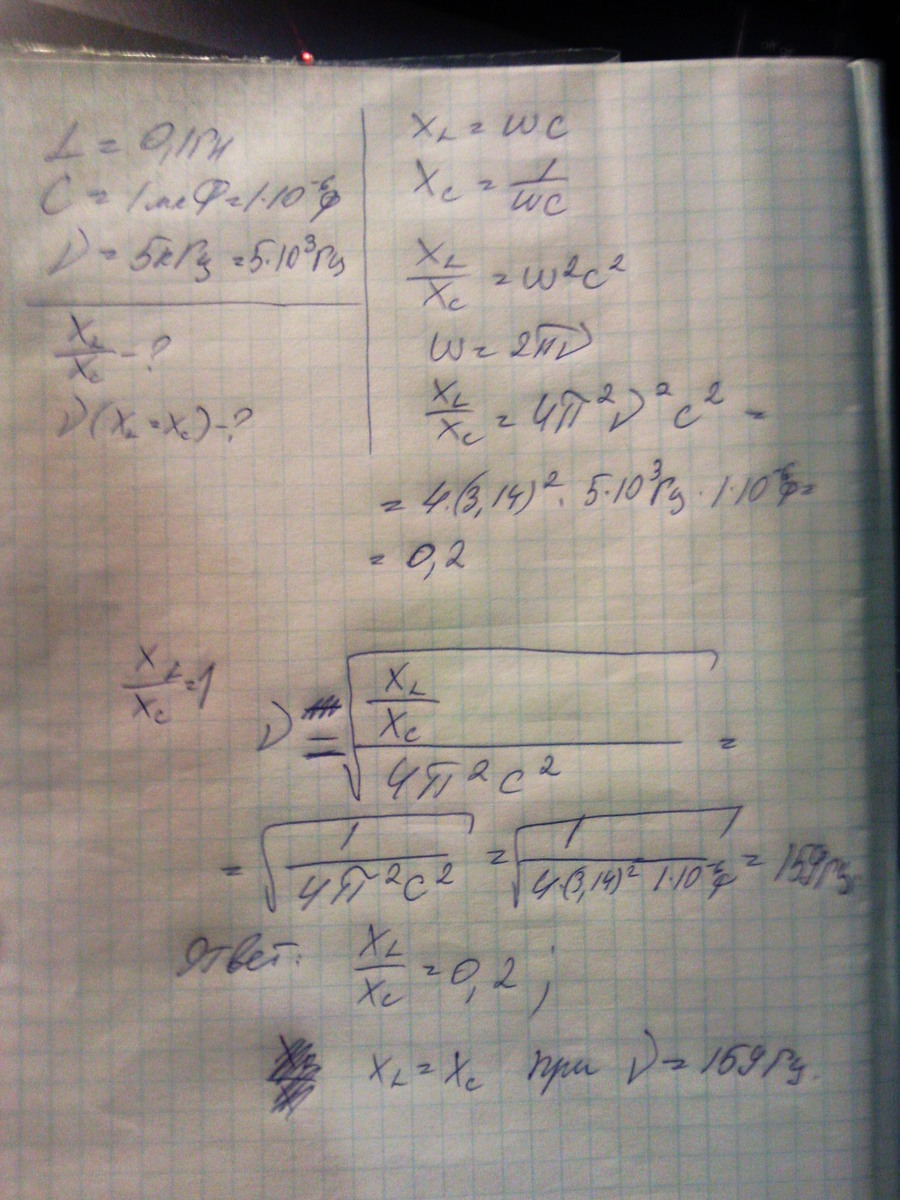 L = 0,1Гн
C = 1мкФ = 1·10⁻⁶Ф
ν = 5кГц = 5·10³Гц
X_L/X_C - ?
ν(X_L = X_C) - ?
X_L = ωC
X_C = 1/ωC
X_L/X_C = ω²C²
ω = 2πν
X_L/X_C = 4π²ν²C² =
= 4·(3,14)²·5·10³Гц·1·10⁻⁶Ф =
= 0,2
X_L/X_C = 1
ν = √((X_L/X_C)/(4π²C²)) =
= √(1/(4π²C²)) = √(1/(4·(3,14)² 1·10⁻⁶Ф)) = 159Гц
Ответ: X_L/X_C = 0,2 ;
X_L = X_C при ν = 159Гц.